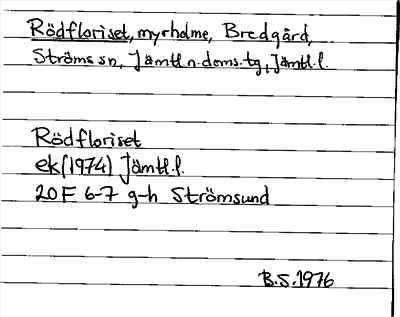 Rödfloriset, myrholme, Bredgård,
Ströms sn, Jämtl.n.doms.tg, Jämtl.l.
Rödfloriset
ek(1974) Jämtl.l.
20 F 6-7 g-h Strömsund
B.S. 1976